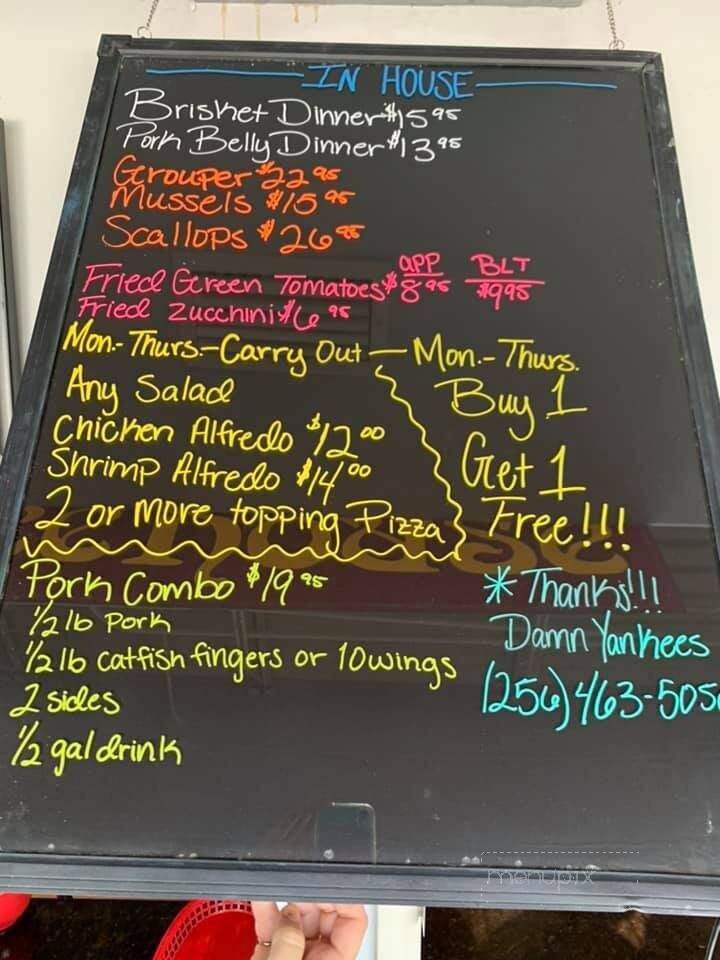 IN HOUSE
Brisket Dinner $15.95
Pork Belly Dinner $13.95
Grouper $22.95
Mussels $15.95
Scallops $26.95
APP BLT
Fried Green Tomatoes $8.95 $9.95
Fried Zucchini $6.95
Mon.-Thurs.-Carry Out - Mon.-Thurs.
Any Salad
Chicken Alfredo $12.00
Shrimp Alfredo $14.00
2 or more topping Pizza
Buy 1
Get 1
Free!!!
Pork Combo $19.95
1/2 lb Pork
1/2 lb catfish fingers or 10 wings
2 sides
1/2 gal drink
* Thanks!!!
Damn Yankees
(256) 463-505
menupix